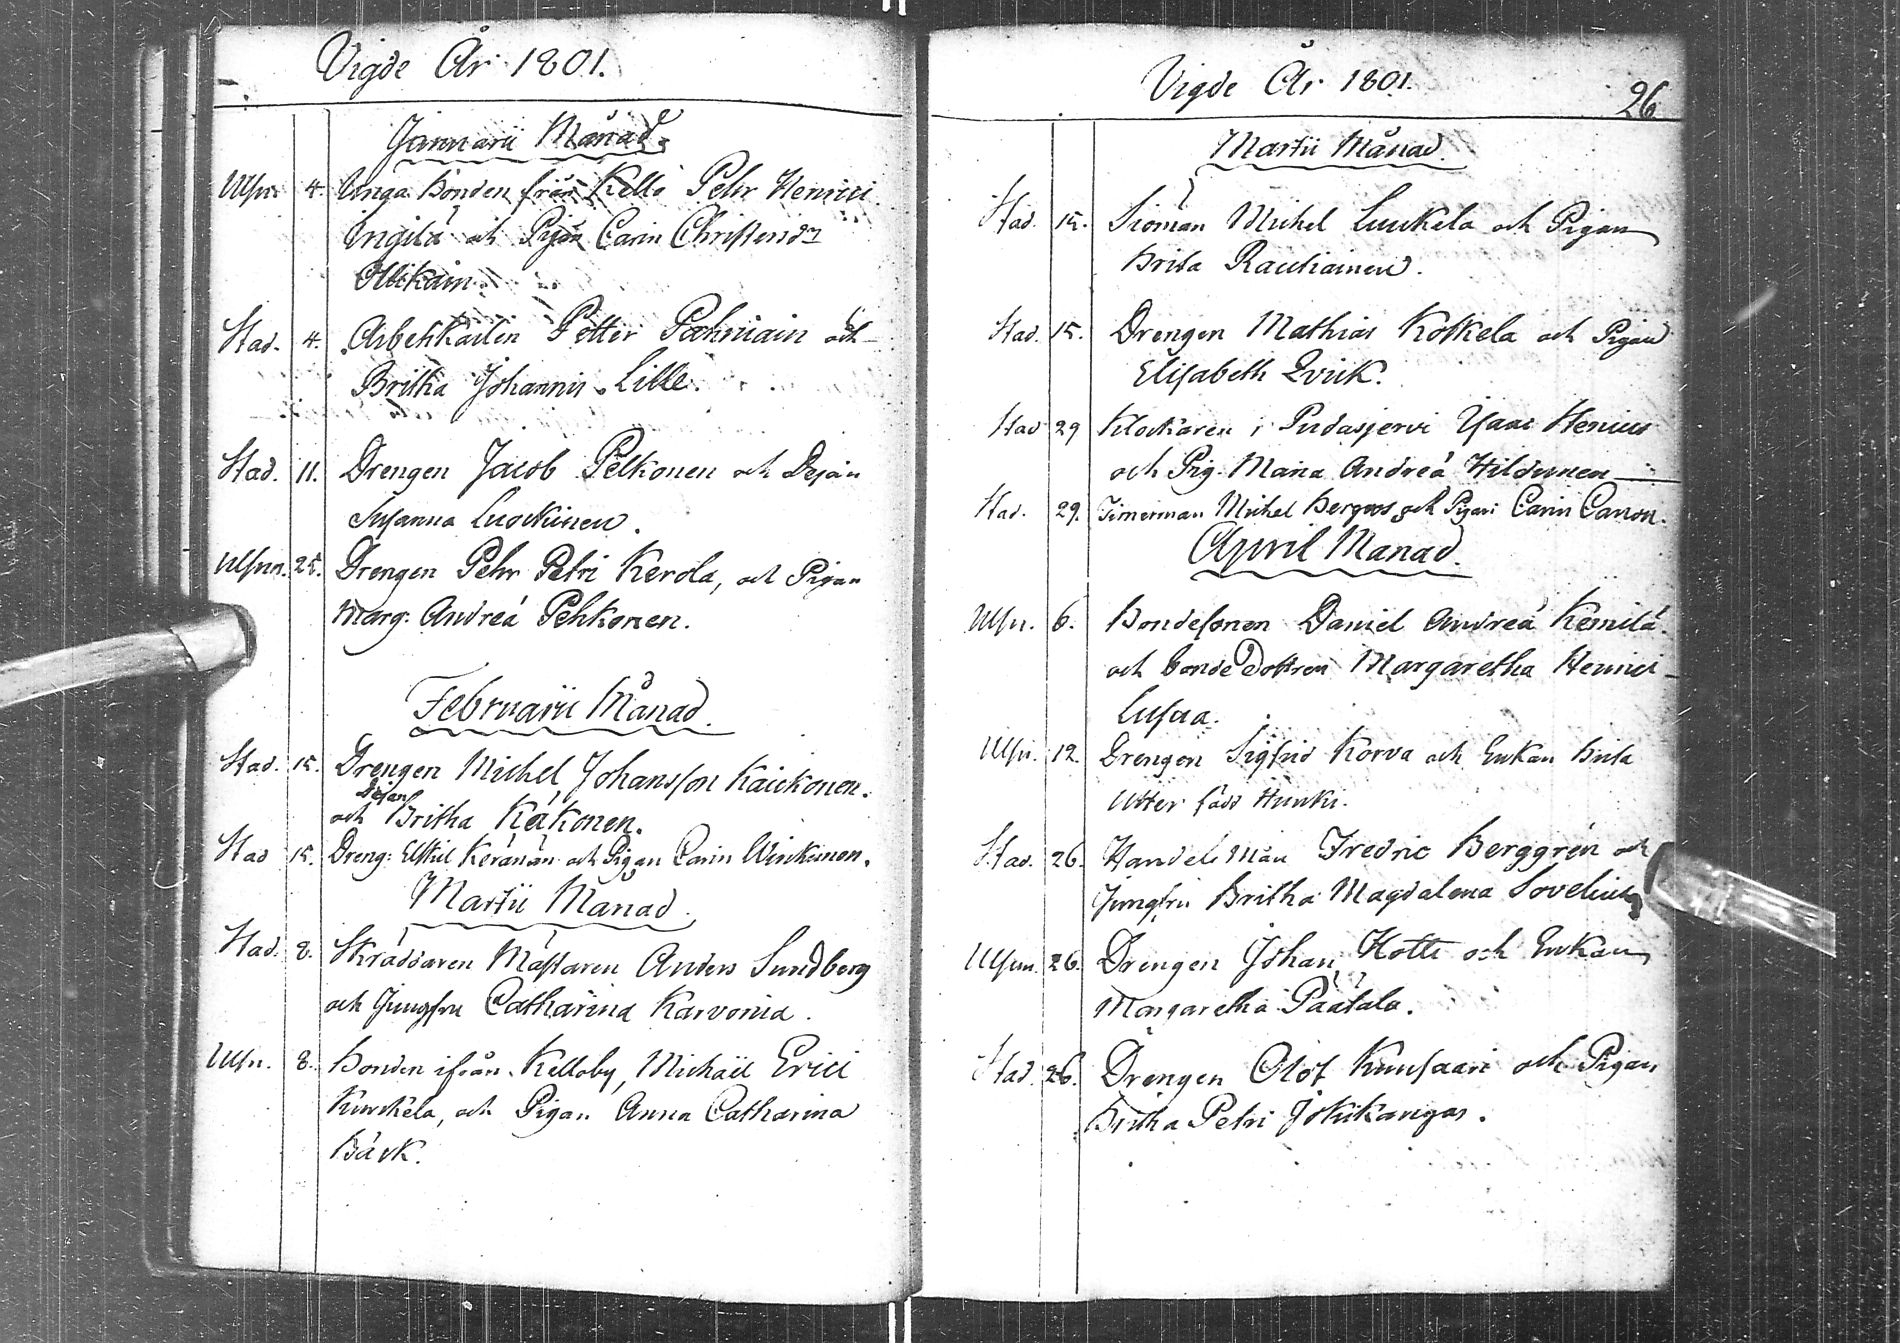 Vigde År 1801.
Januarii Månad.
Ulfsn. 4. Unga Bonden från Kello Pehr Henrici
Ingilä och Pigan Carin Christersdr
Ollikain.
Stad. 4. Arbetskarlen Petter och
Britha Johannis Lille.
Stad. 11. Drengen Jacob Pelkonen och Dejan
Susanna Luockinen.
Ulfsn. 25. Drengen Pehr Petri Kerola, och Pigan
Marg: Andreä Pehkonen.
Februarii Månad.
Stad. 15. Drengen Michel Johansson Kaickonen.
Dejan
och Britha Käkonen.
Stad 15. Dreng: Eskil Keränän och Pigan Carin
Martii Månad.
Stad. 8. Skräddaren Mästaren Anders Sundberg
och Jungfru Catharina Karvonia.
Ulfn. 8. Bonden ifrån Kelloby, Michaël Erici
Kurckela, och Pigan Anna Catharina
Bäck.
Vigde År 1801.
26
Martii Månad.
Stad. 15. Sjöman Michel Luukela och Pigan
Brita Rautiainen.
Stad. 15. Drengen Mathias Koskela och Pigan
Elisabeth Qvick.
Stad 29 Klockaren i Pudasjervi Isaac Henrici
och Pig. Maria Andreä Hildunen
Stad. 29. Timerman Michel och Pigan Carin
April Månad.
Ulfn. 6. Bondesonen Daniel Andreä Kemilä
och bonde Dottren Margaretha Henrici
Ulfn. 12. Drengen Sigfrid Korva och Enkan Brita
Utter född Hunku.
Stad. 26. Handels Man Fredric Berggrén och
Jungfru Britha Magdalena Sovelius
Ulfsn. 26. Drengen Johan Hotti och Enkan
Margaretha Päätalo.
Stad. 26. Drengen Olof Kuusaari och Pigan
Britha Petri Jokikangas.